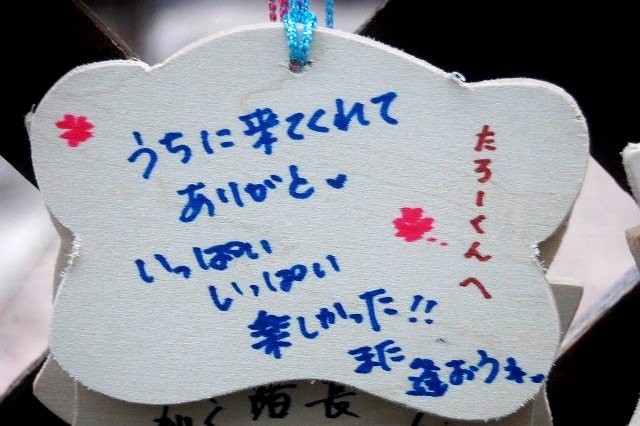 たろーくんへ
うちに来てくれて
ありがと
いっぱい
いっぱい
楽しかった!!
また逢おうね